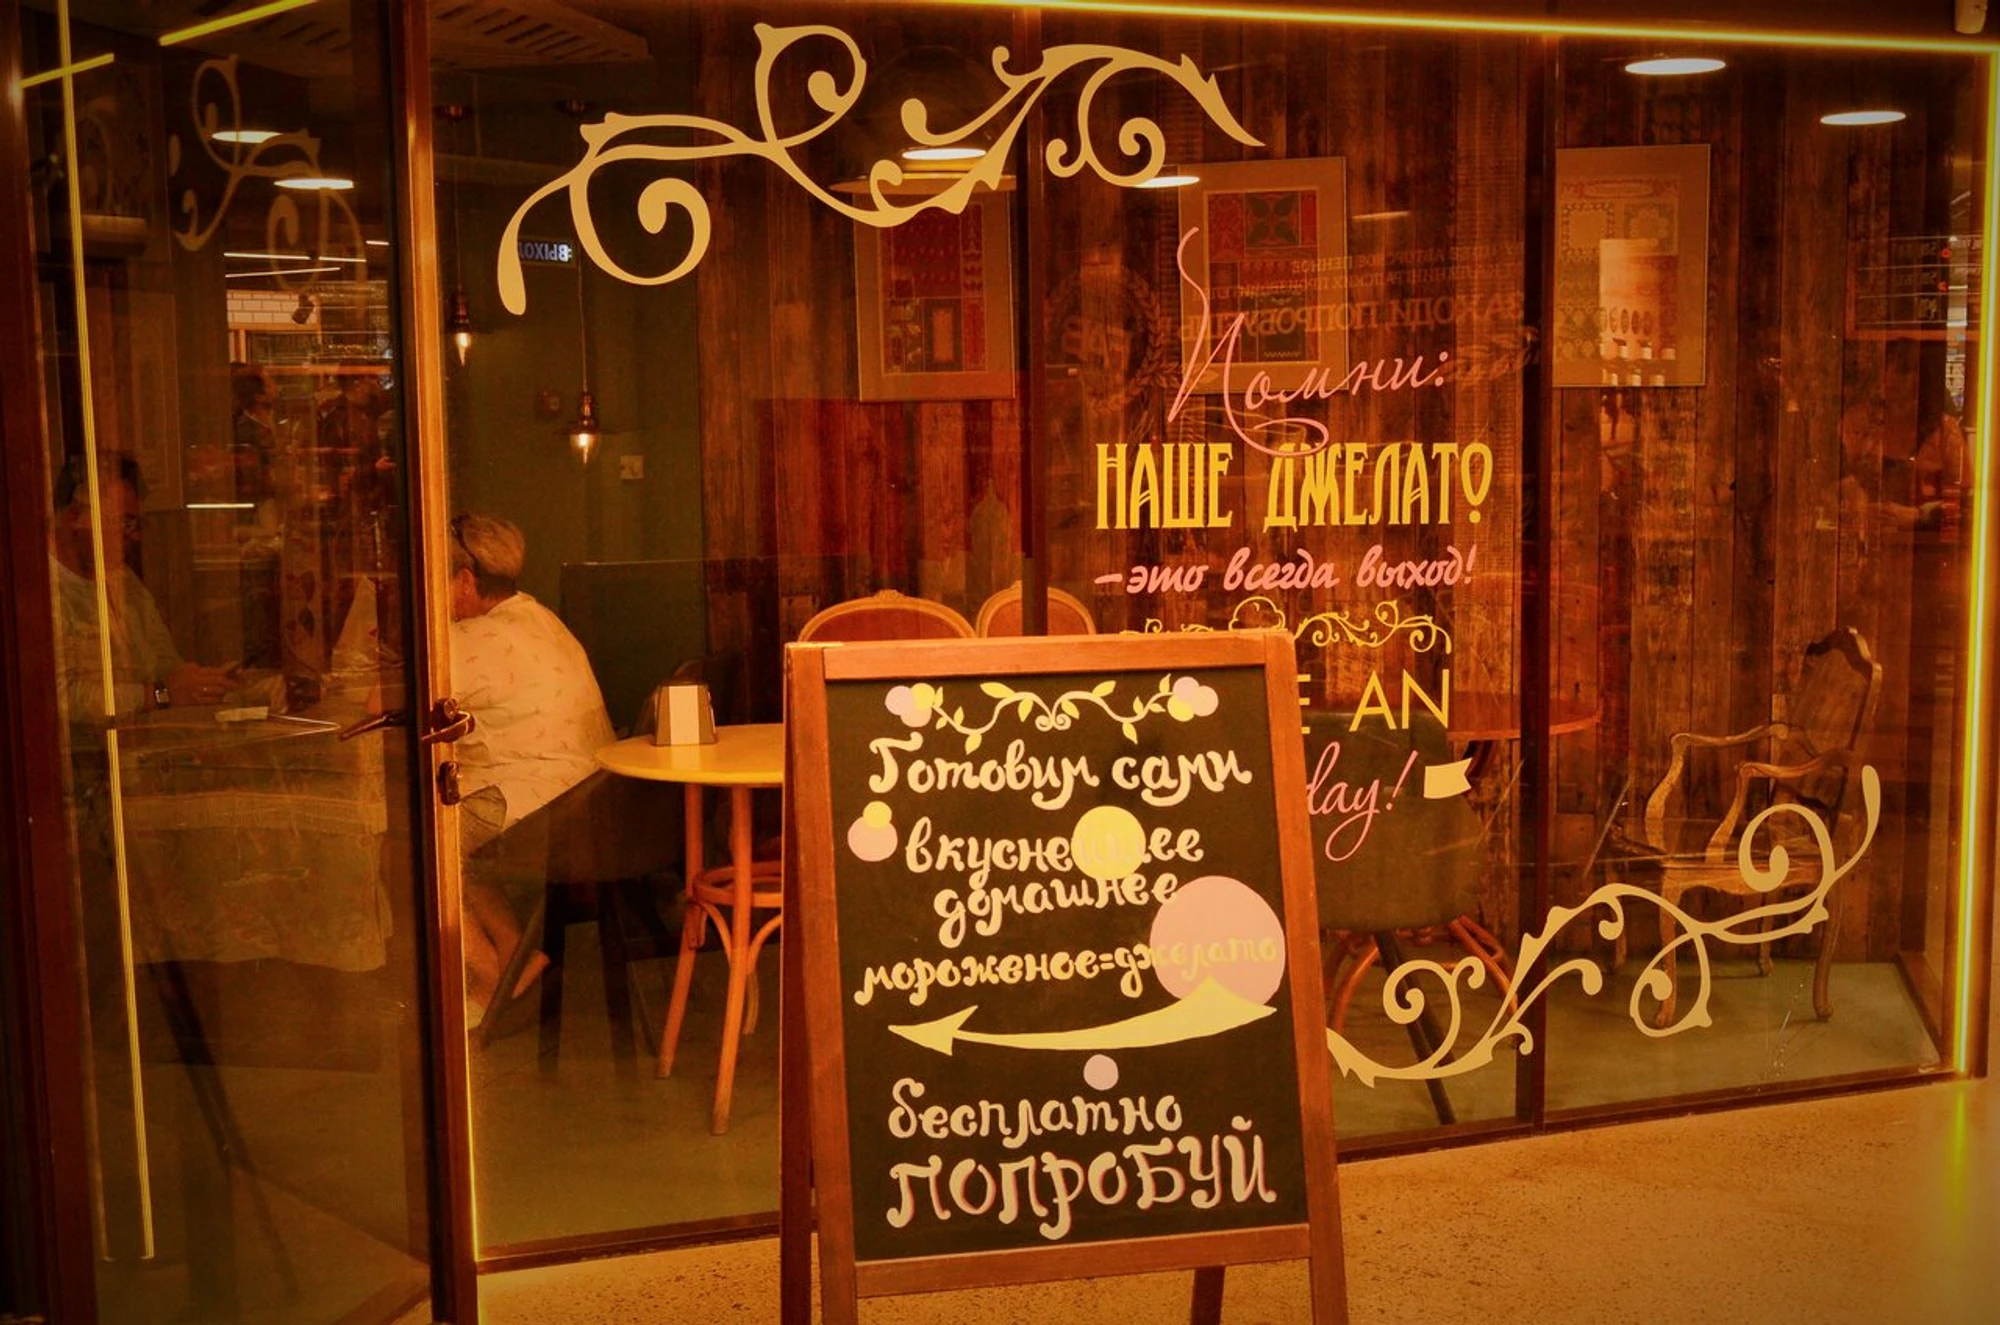 ВЫХОД
Помни:
НАШЕ ДЖЕЛАТО
– это всегда выход!
E AN
day!
Готовим сами
вкуснейшее
домашнее
мороженое=джелато
бесплатно
ПОПРОБУЙ
ЗАХОДИ, ПОПРОБУЕШЬ